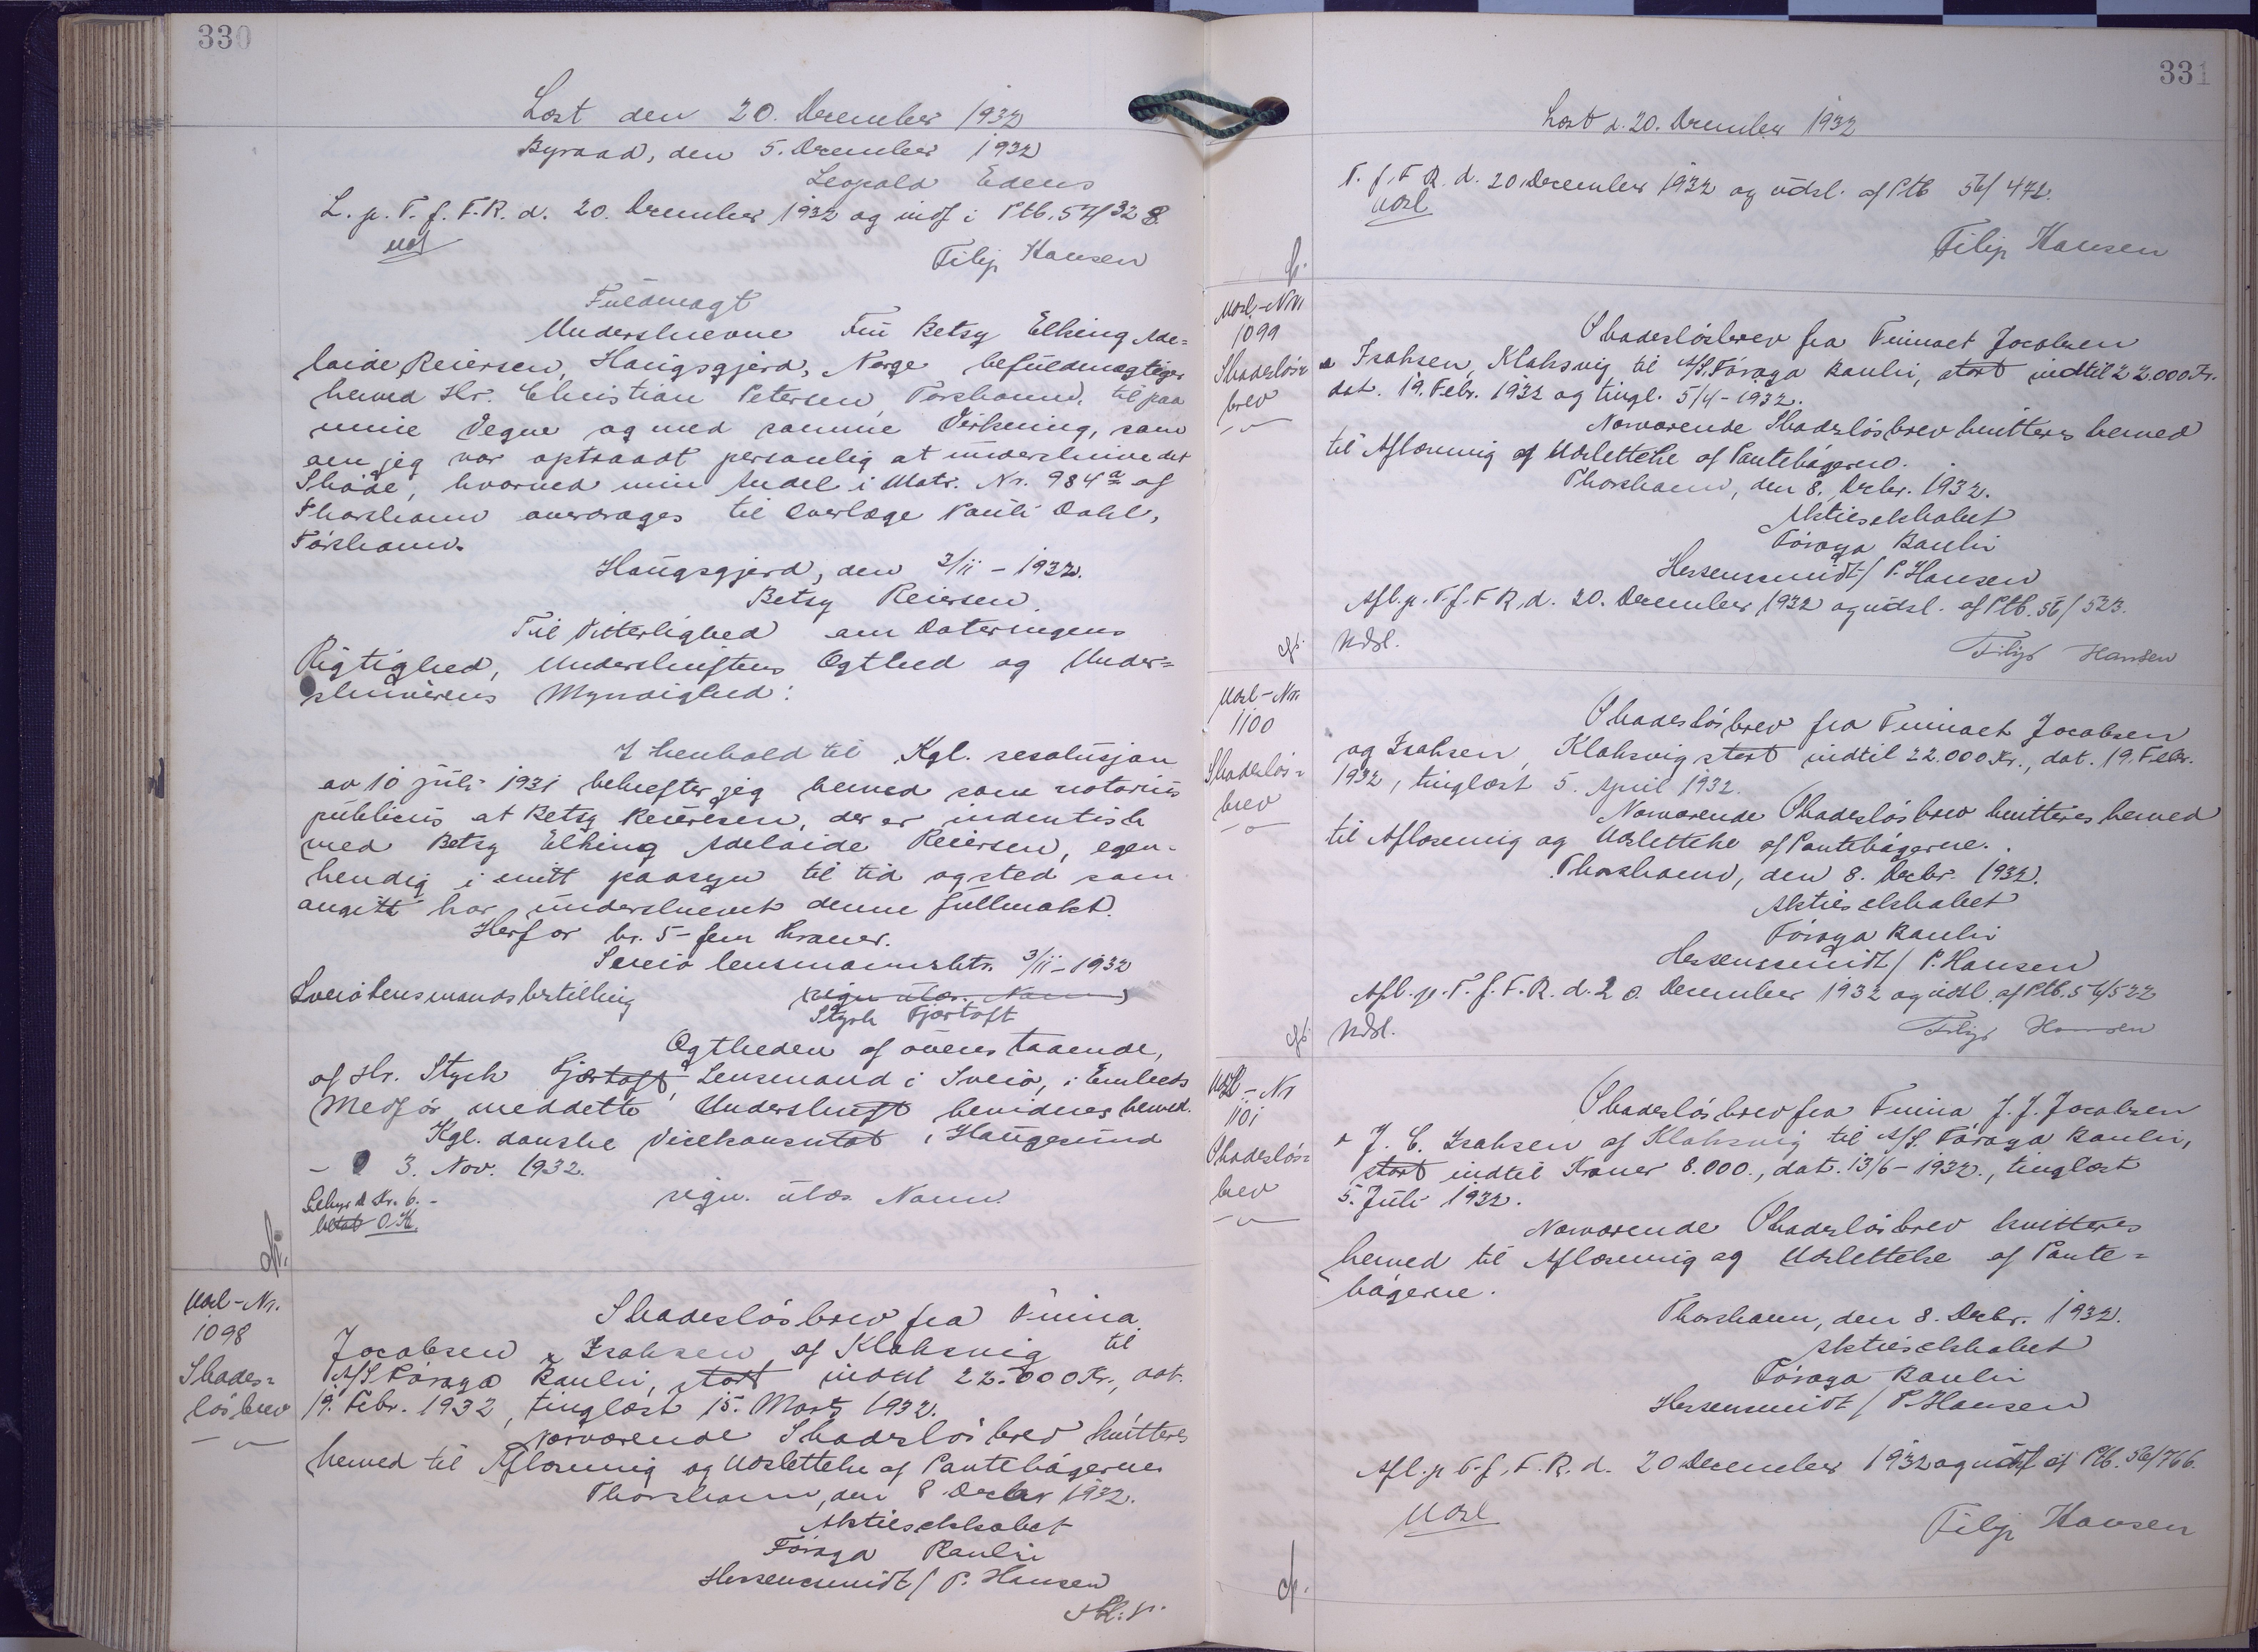 330
Læst den 20. December 1932
Byraad, den 5. December 1932
Leopold Edens
L. p. T. f. F. R. d. 20. December 1932 og indf i Ptb. 57/328.
Filip Hansen
Fuldmagt
Underskrevne Fru Betsy Elking Ade=
laide Reiersen, Haugsgjerd, Norge befuldmægtiger
herved Hr. Christian Petersen, Torshavn, til paa
mine Vegne og med samme Virkning, som
om jeg var optraadt personlig at underskrive det
Skøde, hvorved min Andel i Matr. Nr. 984 a af
Thorshavn overdrages til Overlæge Pauli Dahl,
Torshavn.
Haugsgjerd, den 3/11 - 1932.
Betsy Reiersen.
Til Vitterlighed om Dateringens
Rigtighed, Underskriftens Ægthed og Under=
skriverens Myndighed:
I henhold til Kgl. resolusjon
av 10 juli 1931 bekrefter jeg herved som notarius
publicus at Betsy Reiersen, der er indentisk
med Betsy Elking Adelaide Reiersen, egen-
hendig i mitt paasyn til tid og sted som
angitt har underskrevet denne fullmakt.
Herfor kr. 5 - fem kroner.
Sveio lensmannsbtr. 3/11 - 1932
Sveio lensmandsbestilling
(sign ulæs. Navn)
Styrk Fjærtoft
Ægtheden af ovenstaaende,
af Hr. Styrk Fjærtoft, Lensmand i Sveio, i Embeds
Medfør meddelte Underskrift bevidnes herved.
Kgl. danske Vicekonsulat i Haugesund
- 3. Nov. 1932.
Gebyr d Kr. 6. -
betalt O.K.
sign. ulæs. Navn
Udsl - Nr.
1098
Skades=
løsbrev
Skadesløsbrev fra Firma
Jacobsen & Isaksen af Klaksvig til
A/S Føroya Banki, stort indtil 22.000 Kr., dat.
19. Febr. 1932, tinglæst 15. Marts 1932.
Nærværende Skadesløsbrev kvitteres
herved til Aflæsning og Udslettelse af Pantebøgerne
Thorshavn, den 8 Decbr 1932.
Aktieselskabet
Føroya Banki
Hessenschmidt / P. Hansen
Afl. p.
331
Læst d. 20. December 1932
T. f. F R. d. 20 December 1932 og udsl. af Ptb 56/472.
Udsl
Filip Hansen
Udsl - Nr.
1099
Skadesløs=
brev
Skadesløsbrev fra Firmaet Jacobsen
& Isaksen, Klaksvig til A/S. Føroya Banki, stort indtil 22.000 Kr.
dat. 19. Febr. 1932 og tingl. 5/4 - 1932.
Nærværende Skadesløsbrev kvitteres herved
til Aflæsning og Udslettelse af Pantebøgerne.
Thorshavn, den 8. Decbr. 1932.
Aktieselskabet
Føroya Banki
Hessenschmidt / P. Hansen
Afl. p. T. f. F R. d. 20. December 1932 og udsl. af Ptb. 56/523.
Udsl.
Filip Hansen
Udsl - Nr.
1100
Skadesløs=
brev
Skadesløsbrev fra Firmaet Jacobsen
og Isaksen, Klaksvig stort indtil 22.000 Kr., dat. 19. Febr.
1932, tinglæst 5. April 1932.
Nærværende Skadesløsbrev kvitteres herved
til Aflæsning og Udslettelse af Pantebøgerne.
Thorshavn, den 8. Decbr. 1932.
Aktieselskabet
Føroya Banki
Hessenschmidt / P. Hansen
Afl. p. T. f. F. R. d. 20. December 1932 og udsl. af Ptb. 56/522
Udsl.
Filip Hansen
Udsl - Nr
1101
Skadesløs=
brev
Skadesløsbrev fra Firma J. J. Jacobsen
& J. C. Isaksen af Klaksvig til A/S. Føroya Banki,
stort indtil Kroner 8.000., dat. 13/6 - 1932., tinglæst
5. Juli 1932.
Nærværende Skadesløsbrev kvitteres
herved til Aflæsning og Udslettelse af Pante=
bøgerne.
Thorshavn, den 8. Decbr. 1932.
Aktieselskabet
Føroya Banki
Hessenschmidt / P. Hansen
Afl. p T. f. F. R. d. 20 December 1932 og udsl af Ptb. 56/766.
Udsl
Filip Hansen